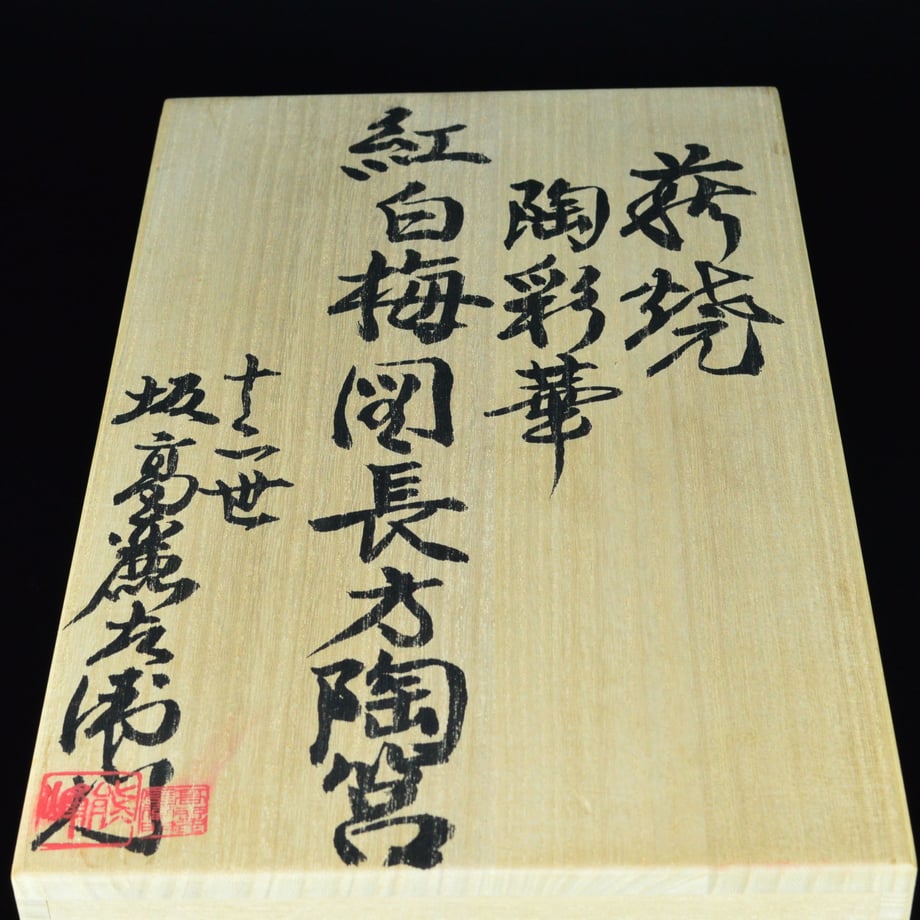 萩焼
陶彩華
紅白梅図長方陶筥
十二世
坂高麗左衛門